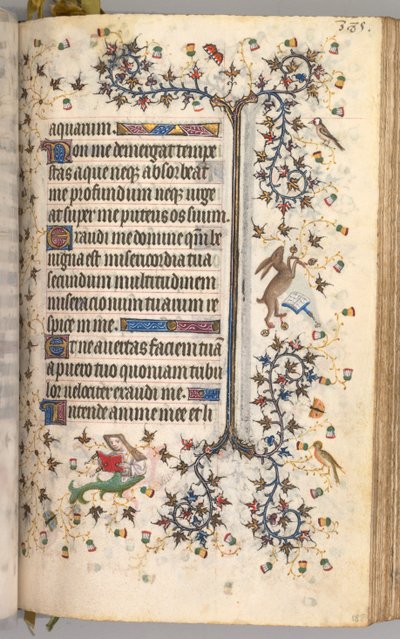 335.
aquarum.
Non me demergat tempe
stas aque neq; absorbeat
me profundum neq; urge
at super me puteus os suum.
Exaudi me domine qm̄ be
nigna est misericordia tua
secundum multitudinem
miseracionum tuarum re
spice in me.
Et ne avertas faciem tuā
a puero tuo quoniam tribu
lor velociter exaudi me.
Intende anime mee et li